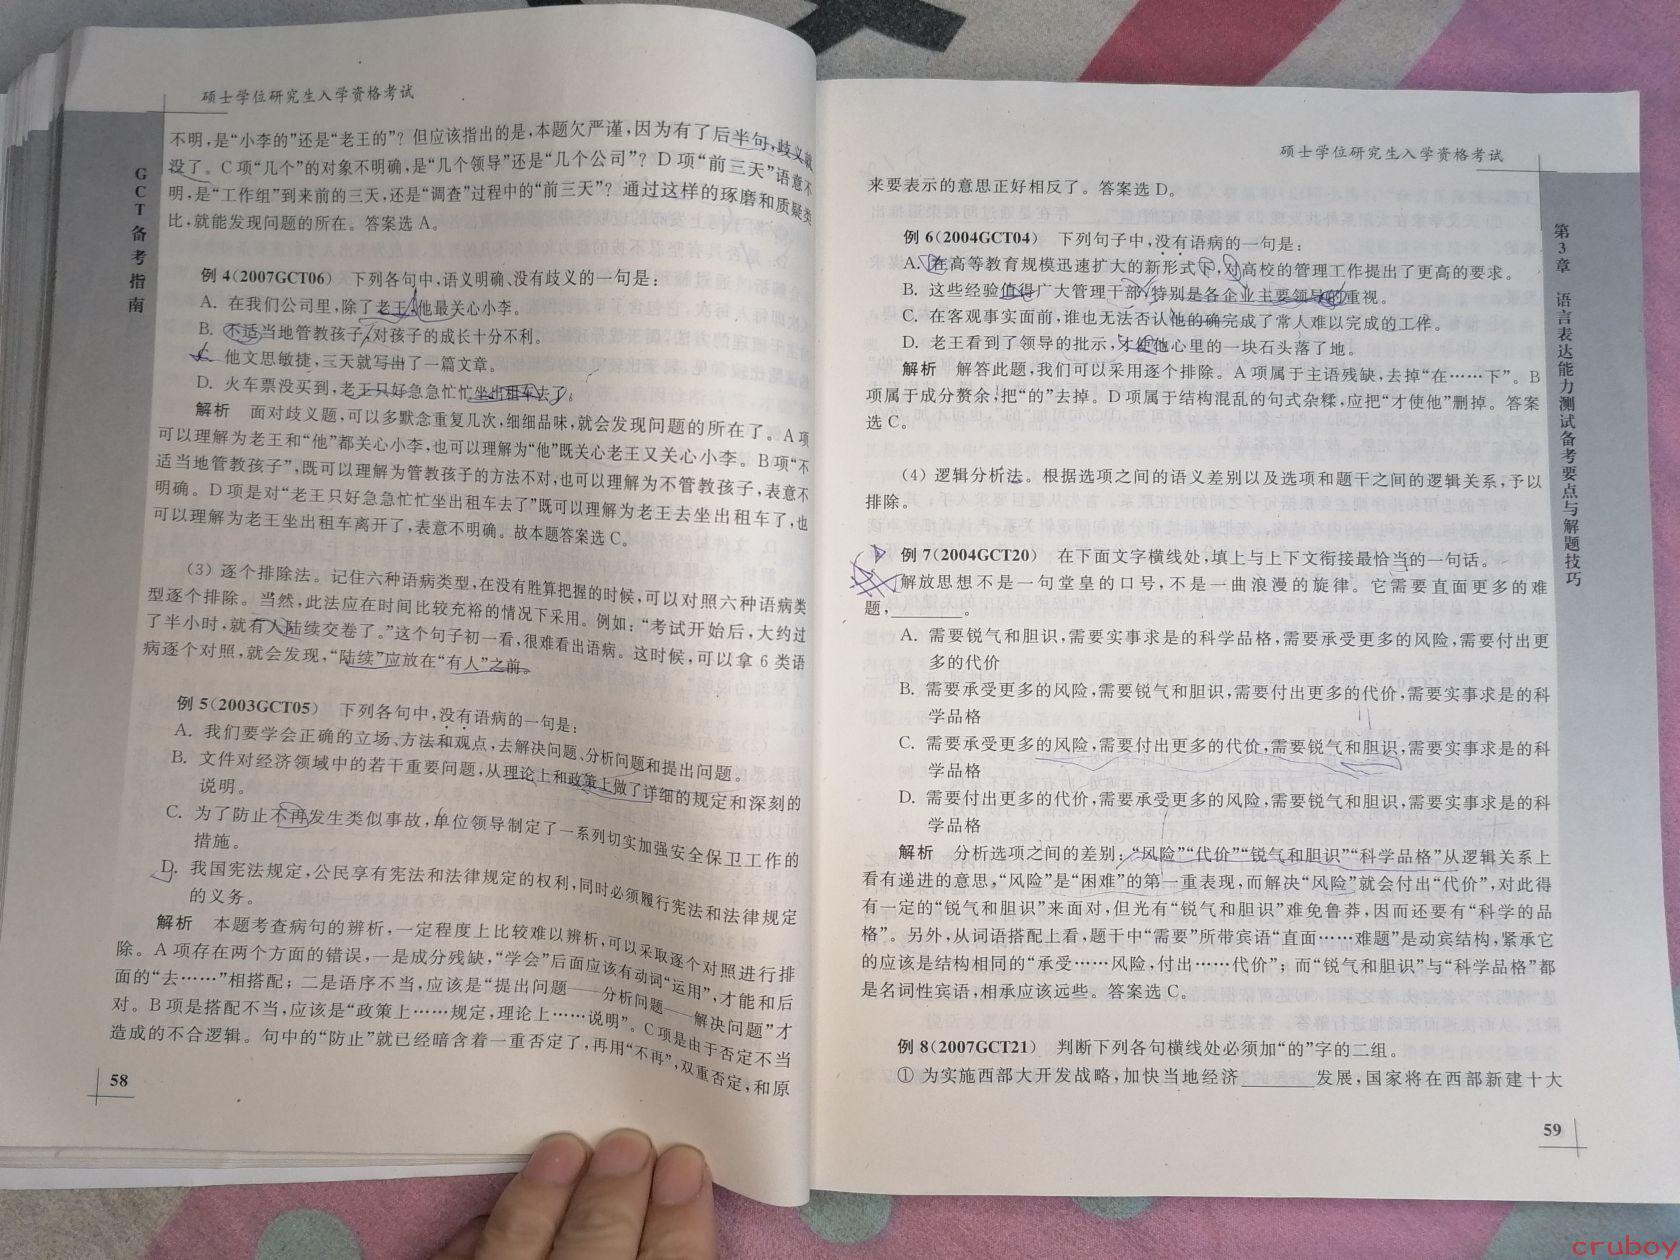 硕士学位研究生入学资格考试
GCT备考指南
不明,是“小李的”还是“老王的”?但应该指出的是,本题欠严谨,因为有了后半句,歧义就
没了。C项“几个”的对象不明确,是“几个领导”还是“几个公司”?D项“前三天”语意不
明,是“工作组”到来前的三天,还是“调查”过程中的“前三天”?通过这样的琢磨和质疑类
比,就能发现问题的所在。答案选A。
例4(2007GCT06) 下列各句中,语义明确、没有歧义的一句是:
A. 在我们公司里,除了老王,他最关心小李。
B. 不适当地管教孩子,对孩子的成长十分不利。
C. 他文思敏捷,三天就写出了一篇文章。
D. 火车票没买到,老王只好急急忙忙坐出租车去了。
解析 面对歧义题,可以多默念重复几次,细细品味,就会发现问题的所在了。A项
可以理解为老王和“他”都关心小李,也可以理解为“他”既关心老王又关心小李。B项“不
适当地管教孩子”,既可以理解为管教孩子的方法不对,也可以理解为不管教孩子,表意不
明确。D项是对“老王只好急急忙忙坐出租车去了”既可以理解为老王去坐出租车了,也
可以理解为老王坐出租车离开了,表意不明确。故本题答案选C。
(3) 逐个排除法。记住六种语病类型,在没有胜算把握的时候,可以对照六种语病类
型逐个排除。当然,此法应在时间比较充裕的情况下采用。例如:“考试开始后,大约过
了半小时,就有人陆续交卷了。”这个句子初一看,很难看出语病。这时候,可以拿6类语
病逐个对照,就会发现,“陆续”应放在“有人”之前。
例5(2003GCT05) 下列各句中,没有语病的一句是:
A. 我们要学会正确的立场、方法和观点,去解决问题、分析问题和提出问题。
B. 文件对经济领域中的若干重要问题,从理论上和政策上做了详细的规定和深刻的
说明。
C. 为了防止不再发生类似事故,单位领导制定了一系列切实加强安全保卫工作的
措施。
D. 我国宪法规定,公民享有宪法和法律规定的权利,同时必须履行宪法和法律规定
的义务。
解析 本题考查病句的辨析,一定程度上比较难以辨析,可以采取逐个对照进行排
除。A项存在两个方面的错误,一是成分残缺,“学会”后面应该有动词“运用”,才能和后
面的“去……”相搭配;二是语序不当,应该是“提出问题——分析问题——解决问题”才
对。B项是搭配不当,应该是“政策上……规定,理论上……说明”。C项是由于否定不当
造成的不合逻辑。句中的“防止”就已经暗含着一重否定了,再用“不再”,双重否定,和原
58
硕士学位研究生入学资格考试
第3章 语言表达能力测试备考要点与解题技巧
来要表示的意思正好相反了。答案选D。
例6(2004GCT04) 下列句子中,没有语病的一句是:
A. 在高等教育规模迅速扩大的新形式下,对高校的管理工作提出了更高的要求。
B. 这些经验值得广大管理干部,特别是各企业主要领导的重视。
C. 在客观事实面前,谁也无法否认他的确完成了常人难以完成的工作。
D. 老王看到了领导的批示,才使他心里的一块石头落了地。
解析 解答此题,我们可以采用逐个排除。A项属于主语残缺,去掉“在……下”。B
项属于成分赘余,把“的”去掉。D项属于结构混乱的句式杂糅,应把“才使他”删掉。答案
选C。
(4) 逻辑分析法。根据选项之间的语义差别以及选项和题干之间的逻辑关系,予以
排除。
例7(2004GCT20) 在下面文字横线处,填上与上下文衔接最恰当的一句话。
解放思想不是一句堂皇的口号,不是一曲浪漫的旋律。它需要直面更多的难
题,________。
A. 需要锐气和胆识,需要实事求是的科学品格,需要承受更多的风险,需要付出更
多的代价
B. 需要承受更多的风险,需要锐气和胆识,需要付出更多的代价,需要实事求是的科
学品格
C. 需要承受更多的风险,需要付出更多的代价,需要锐气和胆识,需要实事求是的科
学品格
D. 需要付出更多的代价,需要承受更多的风险,需要锐气和胆识,需要实事求是的科
学品格
解析 分析选项之间的差别:“风险”“代价”“锐气和胆识”“科学品格”从逻辑关系上
看有递进的意思,“风险”是“困难”的第一重表现,而解决“风险”就会付出“代价”,对此得
有一定的“锐气和胆识”来面对,但光有“锐气和胆识”难免鲁莽,因而还要有“科学的品
格”。另外,从词语搭配上看,题干中“需要”所带宾语“直面……难题”是动宾结构,紧承它
的应该是结构相同的“承受……风险,付出……代价”;而“锐气和胆识”与“科学品格”都
是名词性宾语,相承应该远些。答案选C。
例8(2007GCT21) 判断下列各句横线处必须加“的”字的二组。
① 为实施西部大开发战略,加快当地经济________发展,国家将在西部新建十大
59
cruboy